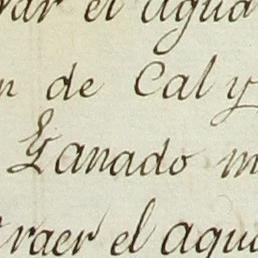 el agua
de Cal y
Ganado
traer el agua